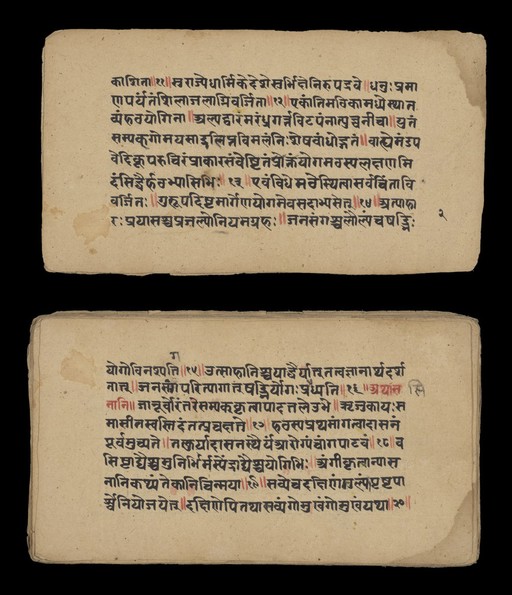 काशिता॥११॥सुराज्येधार्मिकेदेशेसुभिक्षेनिरुपद्रवे॥धनुःप्रमा
णपर्यंतंशिलाग्निजलवर्जिता॥१२॥एकांतेमठिकामध्येस्थात
व्यंहठयोगिना॥अल्पद्वारमरंध्रगर्तविटपंनात्युच्चनीचा॥युतं
सम्यक्गोमयसांद्रलिप्तविमलंनिःशेषबाधोद्गतं॥वाह्येमंडप
वेदिकूपरुचिरंप्राकारसंवेष्टितंप्रोक्तंयोगमठस्यलक्षणमि
दंसिद्धैर्हठाभ्यासिभिः॥१३॥एवंविधेमठेस्थित्वासर्वचिंतावि
वर्जितः॥गुरूपदिष्टमार्गेणयोगमेवसदाभ्यसेत्॥१४॥अत्याहा
रःप्रयासश्चप्रजल्पोनियमग्रहः॥जनसंगश्चलौल्यंचषड्भिः
२
योगोविनश्यति॥१५॥उत्साहान्निश्चयाद्धैर्यात्तत्वज्ञानार्थदर्श
नात्॥जनसंगपरित्यागात्षड्भिर्योगःप्रसिध्यति॥१६॥अथास
नानि॥जानूर्वोरंतरेसम्यक्कृत्वापादतलेउभे॥ऋजुकायःस
मासीनस्वस्तिदंतत्प्रचक्षते॥१७॥हठस्यप्रथमांगत्वादासनं
पूर्वमुच्यते॥तत्कुर्यादासनंस्थैर्यंआरोग्यंचांगपाटवं॥१८॥व
सिष्ठाद्यैश्चमुनिभिर्मत्स्येंद्राद्यैश्चयोगिभिः॥अंगीकृतान्यास
नानिकथ्यंतेकानिचिन्मया॥१९॥सव्येचदक्षिणंगुल्फंपृष्ठपा
र्श्वेनियोजयेत्॥दक्षिणेपितथासव्यंगोमुखंगोमुखंयथा॥२०॥